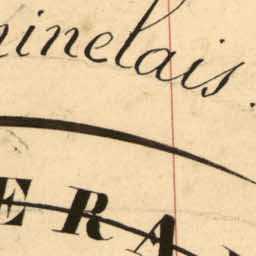 inelais.
ERA